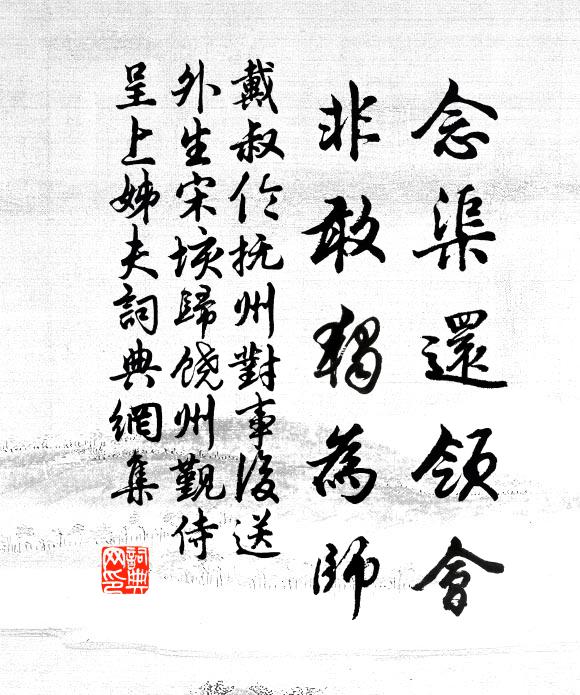 念渠還領會
非敢獨為師
戴叔伦抚州對事後送
外生宋垓歸饶州覲侍
呈上姊夫詞典網集
詞典网印